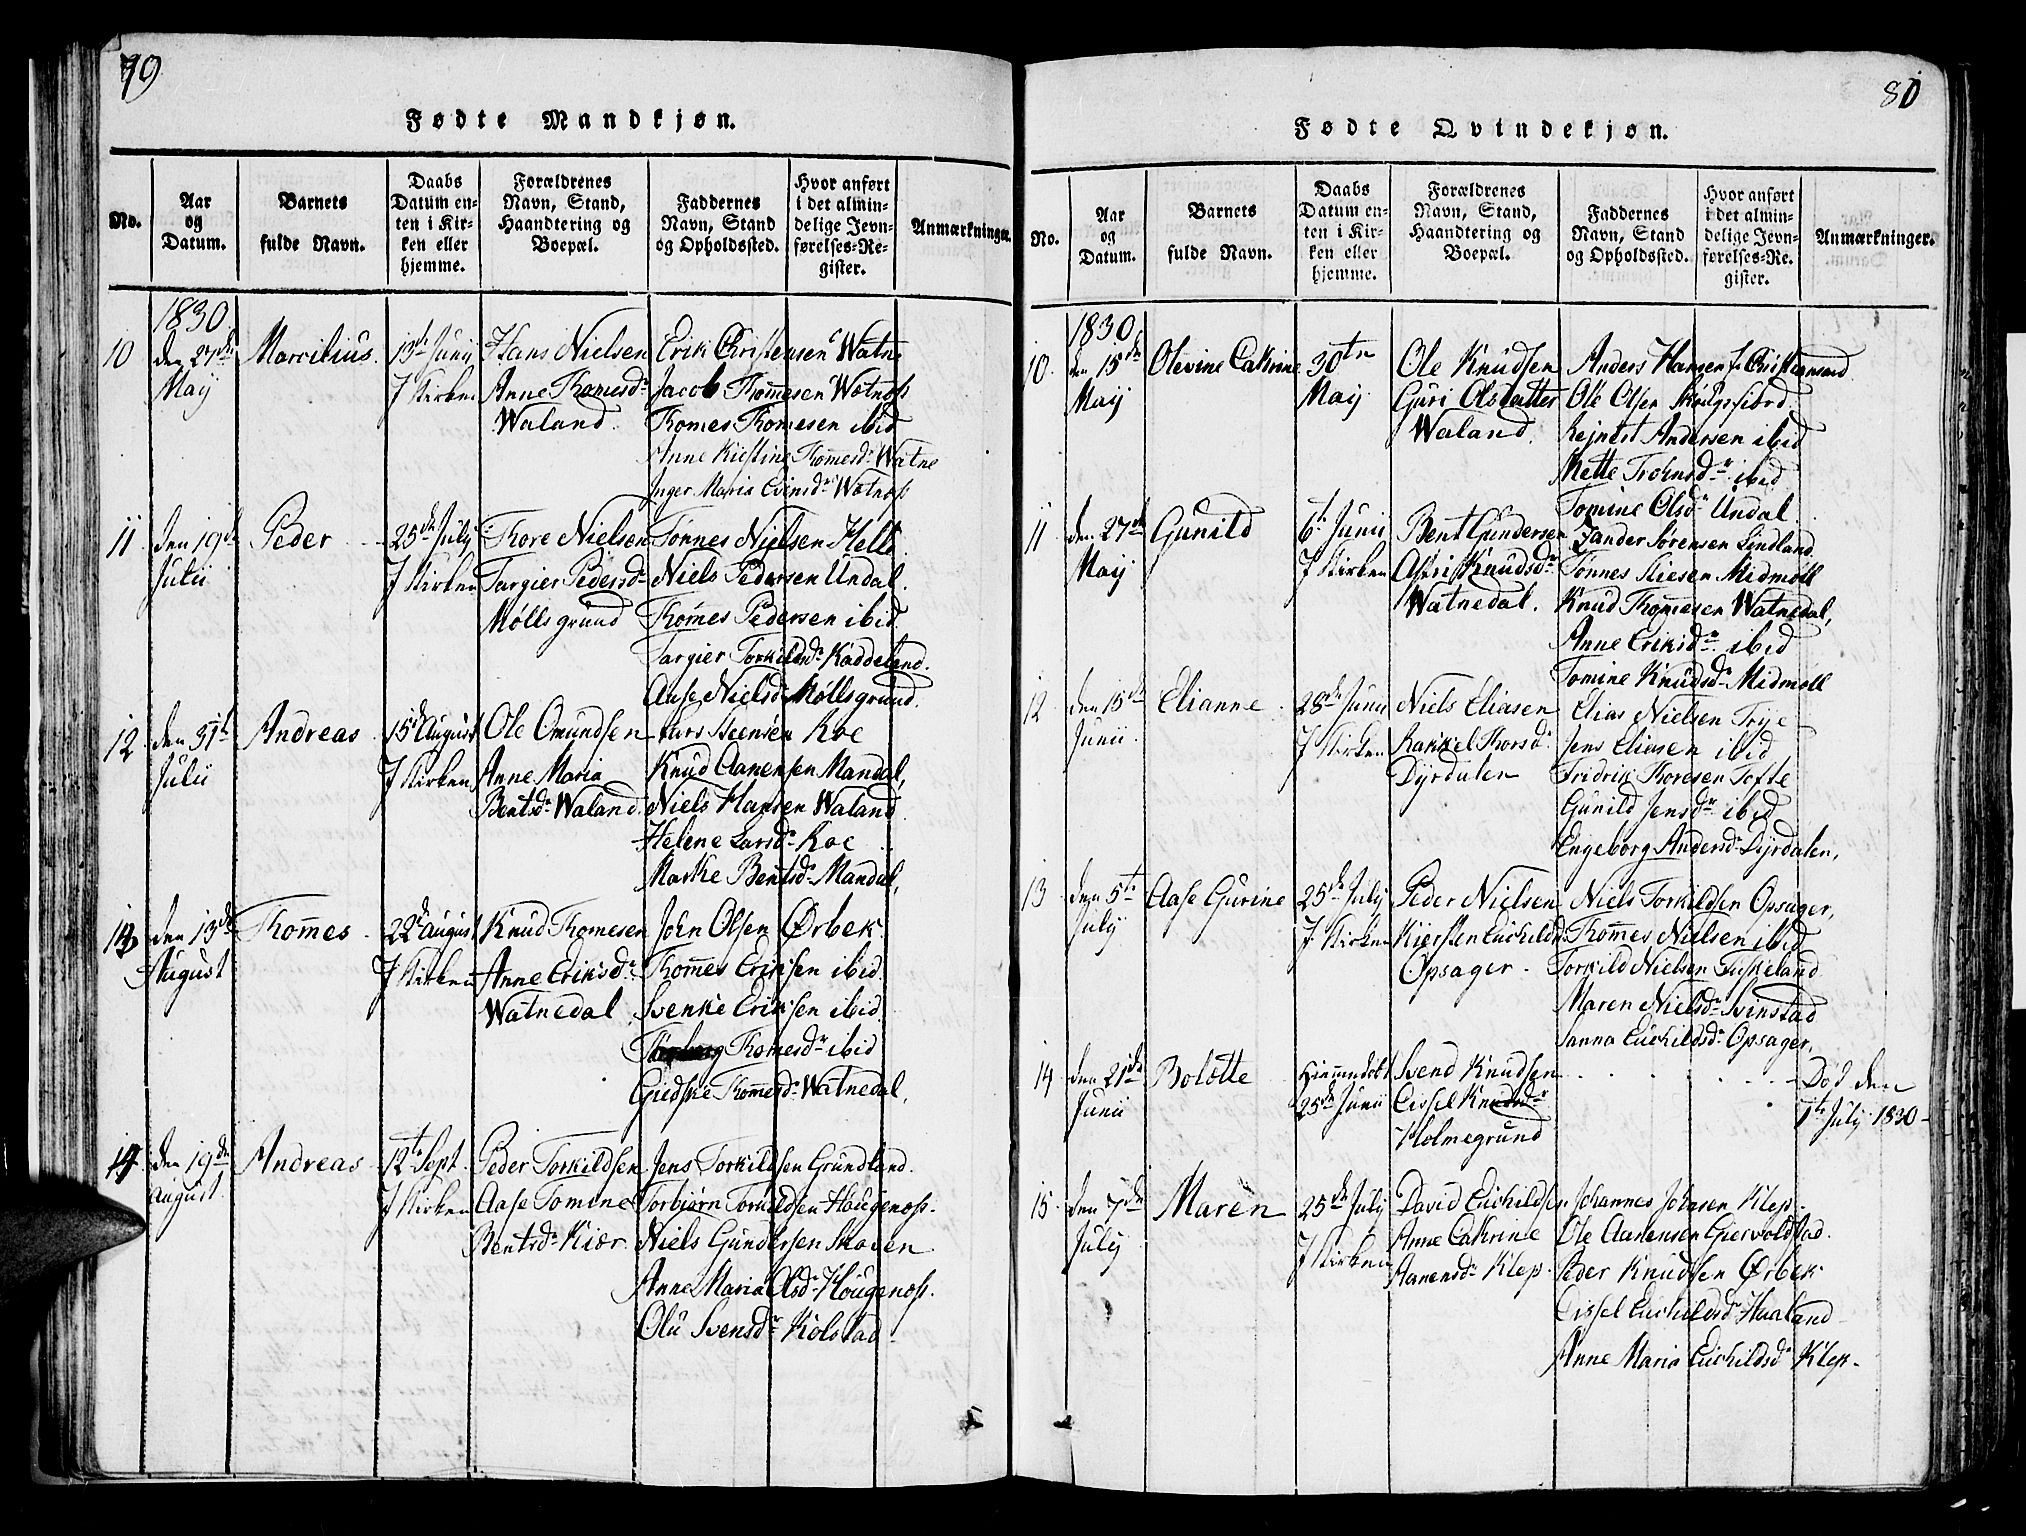 79
Fødte Mandkjøn.
No.
Aar
og
Datum.
Barnets
fulde Navn.
Daabs
Datum en-
ten i Kir-
ken eller
hjemme.
Forældrenes
Navn, Stand,
Haandtering og
Boepæl.
Faddernes
Navn, Stand
og Opholdssted.
Hvor anført
i det almin-
delige Jevn-
førelses-Re-
gister.
Anmærkninger.
1830
10
den 27de
Maij
Marcilius.
13de Junij
I Kirken
Hans Nielsen
Anne Thomesdr
Waland.
Erik Christensen Watne
Jacob Thomesen Watnoss
Thomes Thomesen ibid
Anne Kirstine Thomesdr Watne
Inger Maria Evinsdr Watnoss
11
den 19de
Julii
Peder
25de July
I Kirken
Thore Nielsen
Targier Pedersdr
Møllsgrund
Tønnes Nielsen Helle
Niels Pedersen Undal.
Thomes Pedersen ibid
Targier Torkildsdr Kaddeland.
Aase Nielsdr Møllsgrund.
12
den 31te
Julii
Andreas
15de August
I Kirken
Ole Omundsen
Anne Maria
Bentsdr Waland.
Lars Steensen Roe
Knud Aanensen Mandal,
Niels Hansen Waland
Helene Larsdr Roe
Marthe Bentsdr Mandal,
13
den 13de
August
Thomes
22de August
I Kirken
Knud Thomesen
Anne Eriksdr
Watnedal
John Olsen Ørbek
Thomes Eriksen ibid
Svenke Eriksen ibid
Thomesdr ibid
Giedske Thomesdr Watnedal,
14
den 19de
August
Andreas
12te Sept.
I Kirken
Peder Torkildsen
Aase Tomine
Bentsdr Kiær.
Jens Torkildsen Grundland.
Torbjørn Torkildsen Hougenoss.
Niels Gundersen Skoven
Anne Maria Olsdr Hougenoss.
Olu Svensdr Kolstad
80
Fødte Qvindekjøn.
No.
Aar
og
Datum.
Barnets
fulde Navn.
Daabs
Datum en-
ten i Kir-
ken eller
hjemme.
Forældrenes
Navn, Stand,
Haandtering og
Boepæl.
Faddernes
Navn, Stand
og Opholdssted.
Hvor anført
i det almin-
delige Jevn-
førelses-Re-
gister.
Anmærkninger.
1830
10.
den 15de
Maij
Olevine Catrine
30te
Maij
Ole Knudsen
Guri Olsdatter
Waland.
Anders Hansen f. Christiansand
Ole Olsen Skougsfiord.
Rejnert Andersen ibid
Mette Trohnsdr ibid
Tomine Olsdr Undal
11
den 27de
Maij
Gunild
6te Junii
I Kirken
Bent Gundersen
Astri Knudsdr
Watnedal.
Zander Sørensen Lindland
Tønnes Stiesen Midmøll
Knud Thomesen Watnedal,
Anne Eriksdr ibid
Tomine Knudsdr Midmøll
12
den 15de
Junii
Elianne
28de Junii
I Kirken
Niels Eliasen
Rakkel Thorsdr
Dyrdalen
Elias Nielsen Trye
Jens Eliasen ibid
Fridrik Thoresen Tofte
Gunild Jensdr ibid
Engeborg Andersdr Dyrdalen,
13
den 5te
July
Aase Gurine
25de July
I Kirken
Peder Nielsen
Kiersten Euchildsdr
Opsager.
Niels Torkildsen Opsager,
Thomes Nielsen ibid
Torkild Nielsen Fuskeland
Maren Nielsdr Svinstad
Sanna Euchildsdr Opsager,
14
den 21de
Junii
Bolotte
Hiemmedøbt
25de Junii
Svend Knudsen
Cissel Knudsdr
Holmegrund
Død den
1te July 1830-
15
den 7de
July
Maren
25de July
I Kirken
David Euchildsen
Anne Catrine
Aanensdr Klep.
Johannes Johnsen Klep.
Ole Aanensen Giervoldstad.
Peder Knudsen Ørbek
Cissel Euchildsdr Haaland
Anne Maria Euchildsdr Klep.